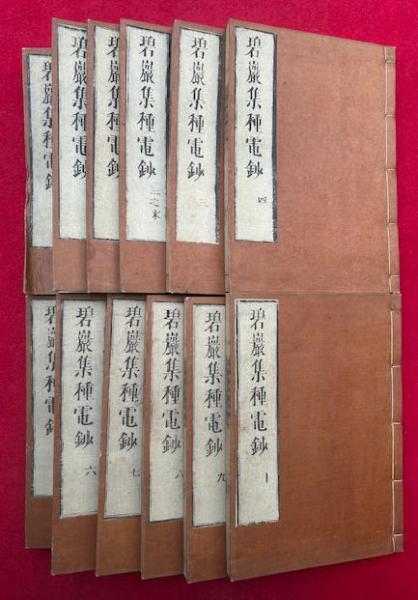 碧巖集種電鈔
碧巖集種電鈔
碧巖集種電鈔
碧巖集種電鈔 二之末
碧巖集種電鈔 三
碧巖集種電鈔 四
碧巖集種電鈔
碧巖集種電鈔 六
碧巖集種電鈔 七
碧巖集種電鈔 八
碧巖集種電鈔 九
碧巖集種電鈔 十